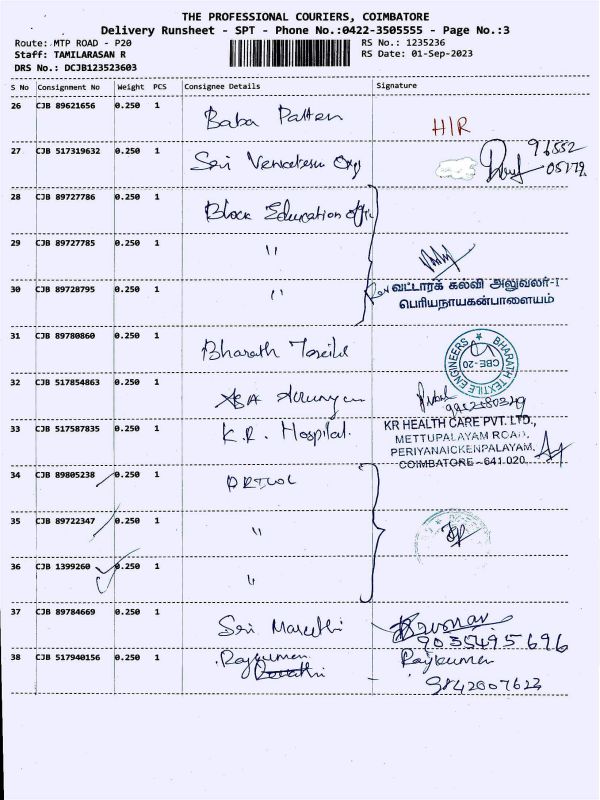 THE PROFESSIONAL COURIERS, COIMBATORE
Delivery Runsheet - SPT - Phone No.:0422-3505555 - Page No.:3
Route: MTP ROAD - P20
RS No.: 1235236
Staff: TAMILARASAN R
RS Date: 01-Sep-2023
DRS No.: DCJB123523603
S No Consignment No Weight PCS Consignee Details Signature
26 CJB 89621656 0.250 1 Baba Patten H/R
27 CJB 517319632 0.250 1 Sri Venkatesu 96552
05179
28 CJB 89727786 0.250 1 Block Education
29 CJB 89727785 0.250 1 "
30 CJB 89728795 0.250 1 " வட்டாரக் கல்வி அலுவலர்-I
பெரியநாயகன்பாளையம்
31 CJB 89780860 0.250 1 Bharath BHARATH TEXTILE ENGINEERS
CBE-20
32 CJB 517854863 0.250 1
33 CJB 517587835 0.250 1 K.R. Hospital. KR HEALTH CARE PVT. LTD.,
METTUPALAYAM ROAD,
PERIYANAICKENPALAYAM,
COIMBATORE - 641 020.
34 CJB 89805238 0.250 1
35 CJB 89722347 0.250 1 "
36 CJB 1399260 0.250 1 "
37 CJB 89784669 0.250 1 Sri Maruthi
9035495696
38 CJB 517940156 0.250 1 Rajkumar Rajkumar
9842007623